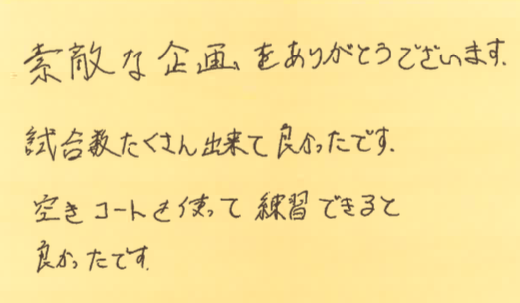 素敵な企画をありがとうございます.
試合数たくさん出来て良かったです.
空きコートを使って練習できると
良かったです.